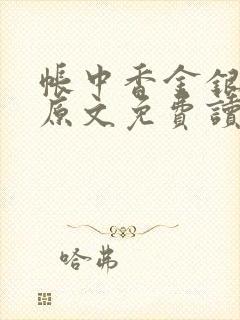 帳中香金銀
原文免費讀
哈弗